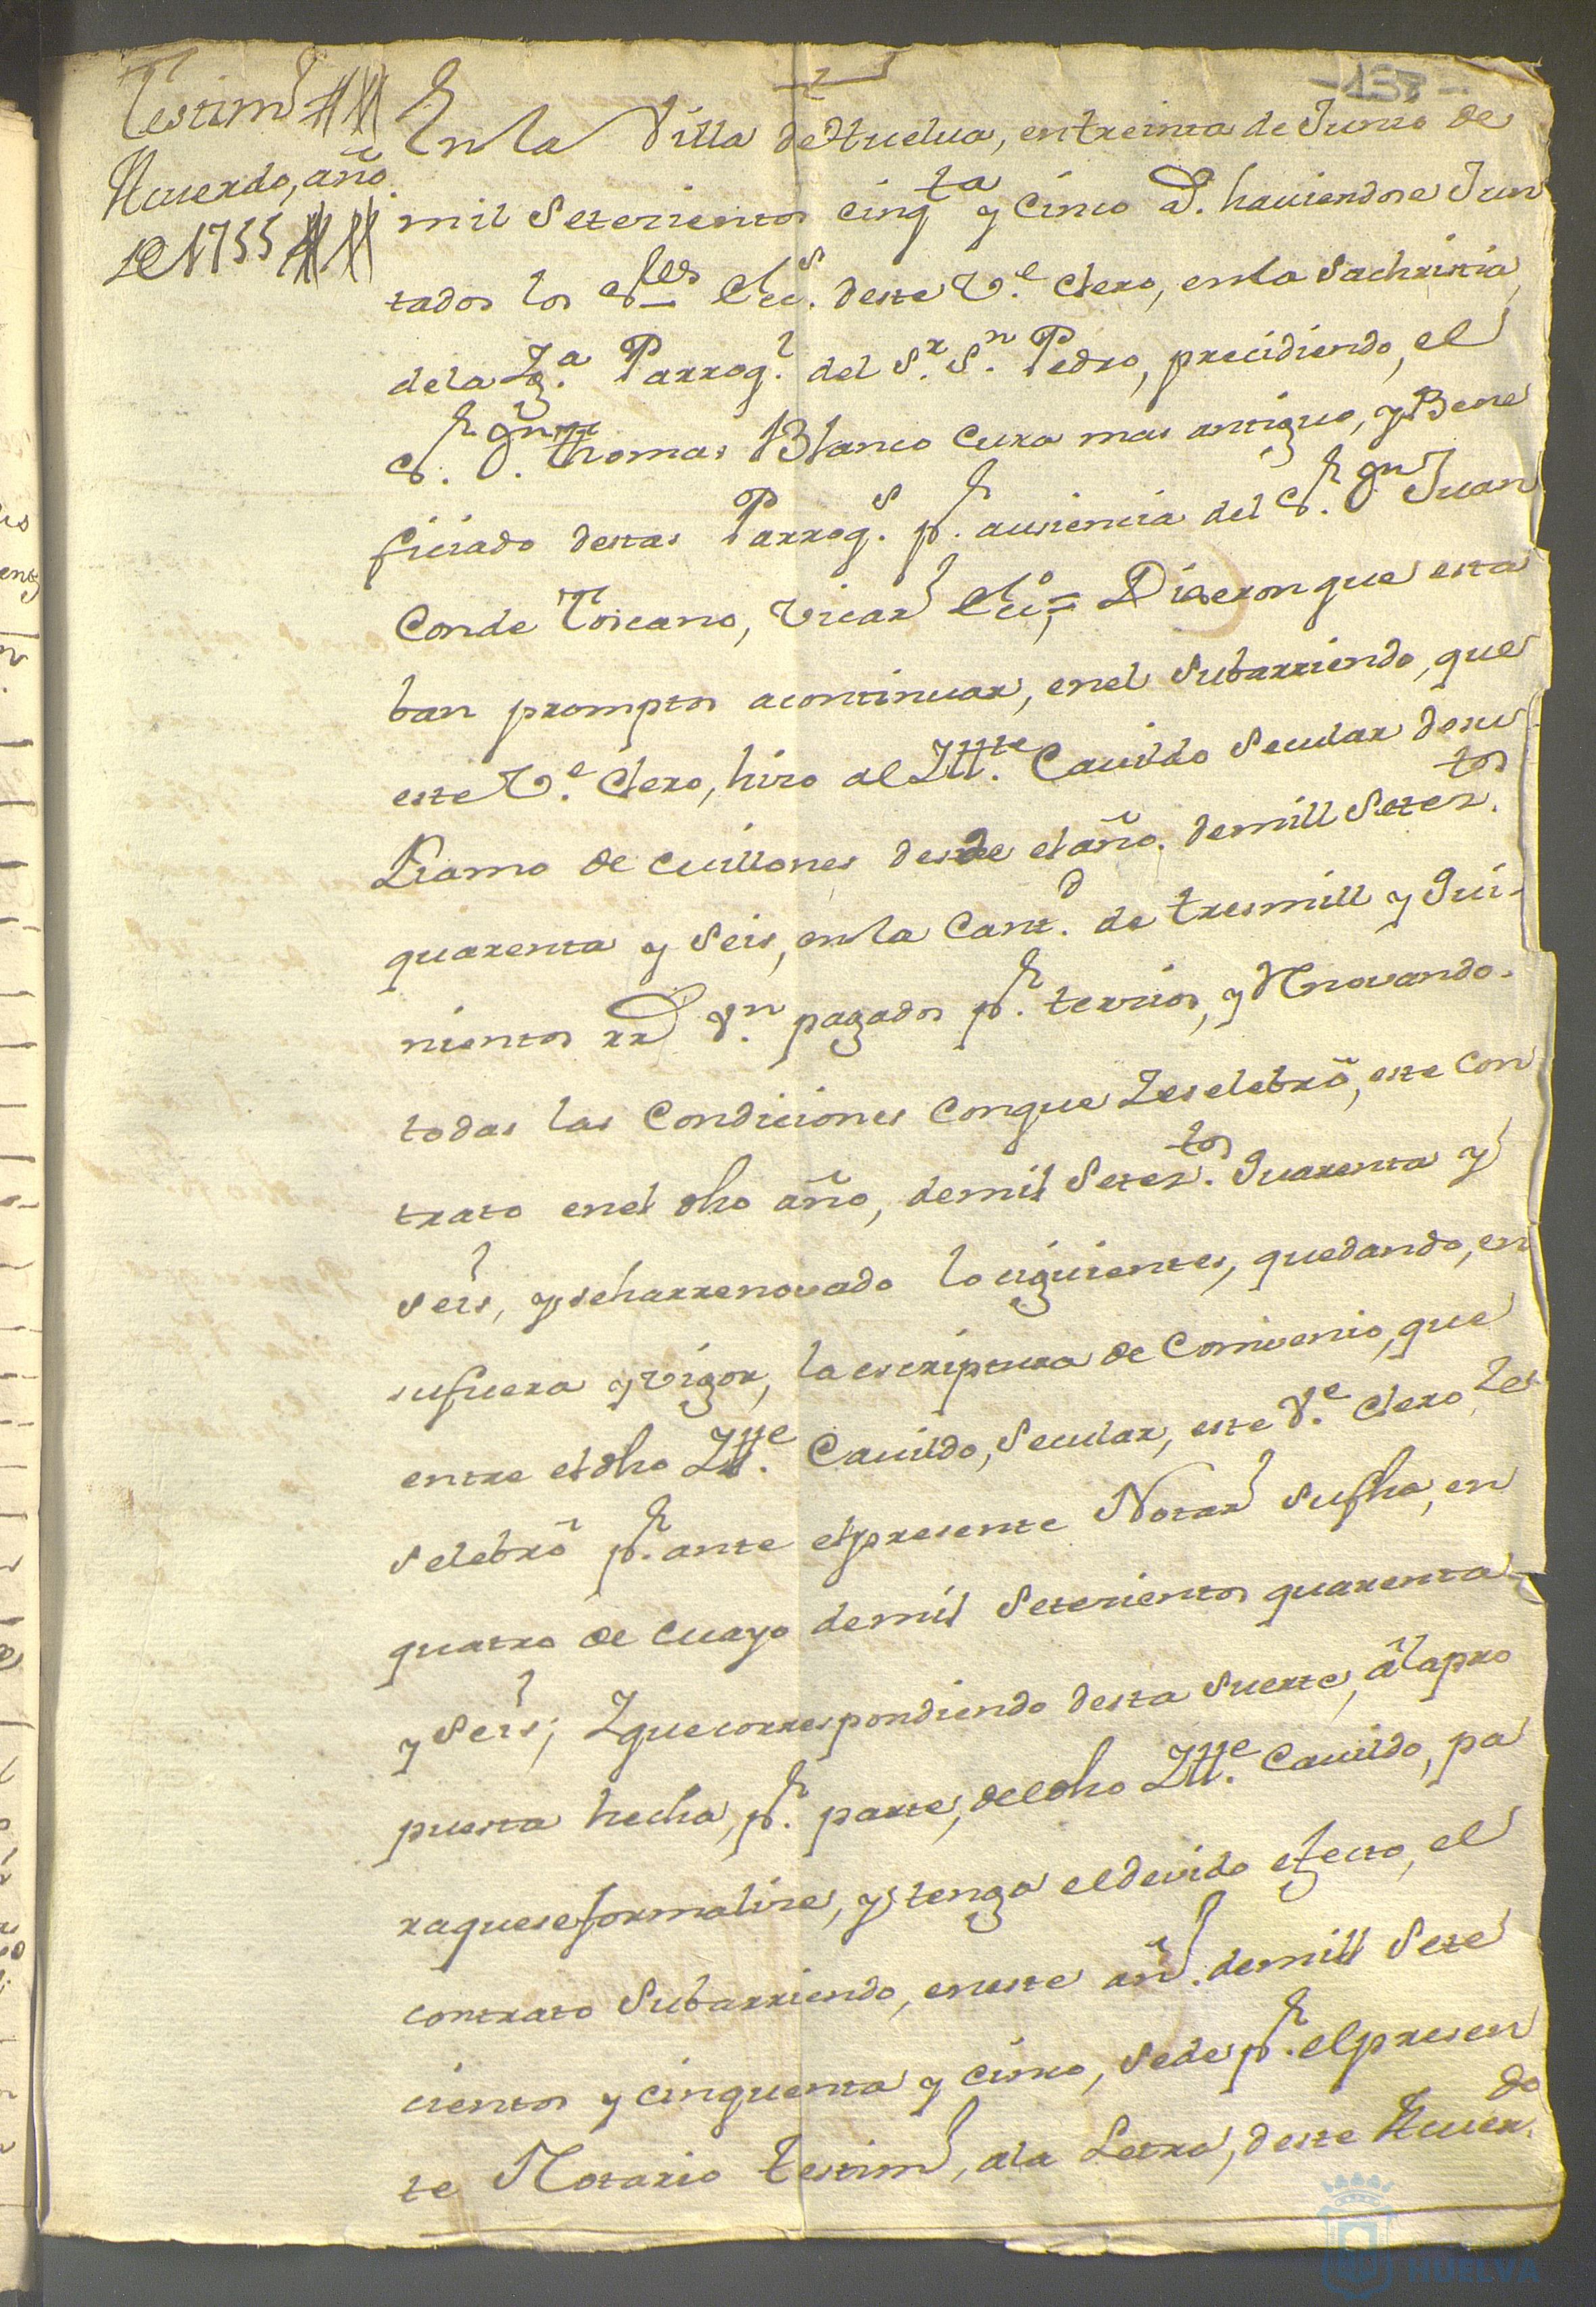 -137-
Testimo
Acuerdo, año
de 1755
En la Villa de Huelua, en treinta de Junio de
mil Setecientos cinqta y cinco a.s haviendose Jun
tados los Sres Ecc.s deste Ve. Clero, en la Sachristia
de la Ig.a Parroq.l del S.r S.n Pedro, precidiendo, el
S.r Dn Thomas Blanco Cura mas antiguo, y Bene
ficiado destas Parroq.s p.r ausencia del S.r Dn Juan
Conde Toscano, Vicaro Ecco; Dixeron que esta
ban promptos a continuar, en el Subarriendo, que
este Ve. Clero, hizo al Illte. Cavildo Secular de su
Ramo de Millones desde el año. de mill Setez.tos
quarenta y Seis, en la Cant.d de tres mill y Qui-
nientos rrs Vn. pagados p.r tercios, y Rnovando-
todas las Condiciones con que Zeselebrò, este con
trato en el dho año, de mil Setez.tos Quarenta y
Seis, y se ha rrenovado lo siguientes, quedando, en
su fuerza y vigor, la escriptura de Comvenio, que
entre el dho Ille. Cavildo, Secular, este Ve. Clero Ze
Selebrò p.r ante el presente Notaro Su fha, en
quatro de Mayo de mil Setecientos quarenta
y Seis; Y que correspondiendo desta Suerte, à la pro
puesta hecha, p.r parte, del dho Ille. Cavildo, pa
ra que se formalize, y tenga el devido efecto, el
contrato Subarriendo, en este año. de mill Sete
cientos y cinquenta y cinco, Se de p.r el presen
te Notario Testimo, a la Letra, deste Acuer.do
HUELVA